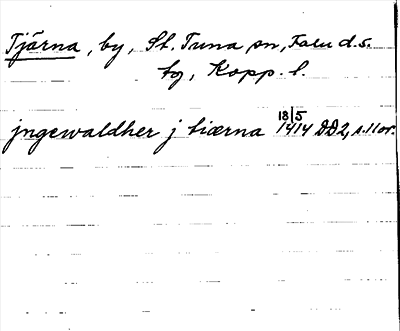 Tjärna, by, St. Tuna sn, Falu d.s.
tg, Kopp. l.
jngewaldher j tiærna 18/5 1414 DD2, s. 11 or.